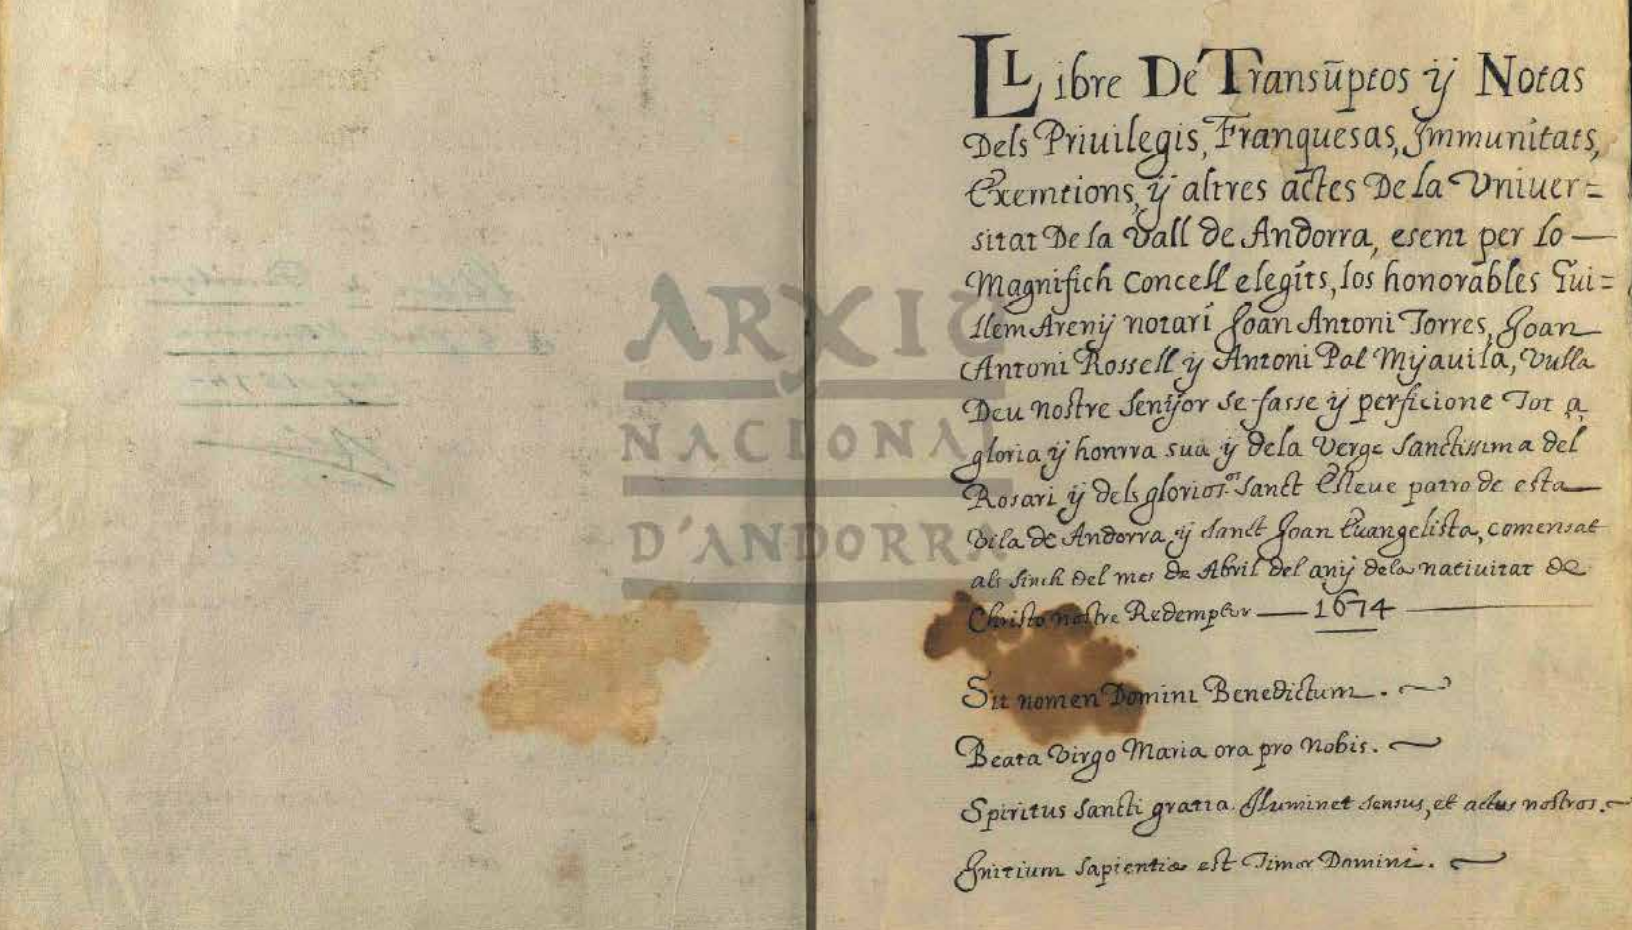 LLibre De Transūptos ÿ Notas
Dels Priuilegis, Franquesas, Jmmunitats,
Exemtions, ÿ altres actes De la Vniuer=
sitat De la Vall de Andorra, esent per lo
Magnifich Concell elegits, los honorables Gui=
llem Areny notari Joan Antoni Torres, Joan
Antoni Rossell ÿ Antoni Pal Myauila, Vulla
Deu nostre Senÿor se fasse ÿ perficione Tot a
gloria ÿ honrra sua ÿ dela Verge Sanctissima del
Rosari ÿ dels glorios.os Sanct Esteue patro de esta
Vila de Andorra ÿ Sanct Joan Euangelista, comensat
als sinch del mes de Abril del anÿ dela natiuitat de
Christo nostre Redemptor — 1674
Sit nomen Domini Benedictum.
Beata Virgo Maria ora pro nobis.
Spiritus Sancti gratia Jluminet sensus, et actus nostros.
Jnitium Sapientiæ est Timor Domini.
ARXIU
NACIONAL
D'ANDORRA